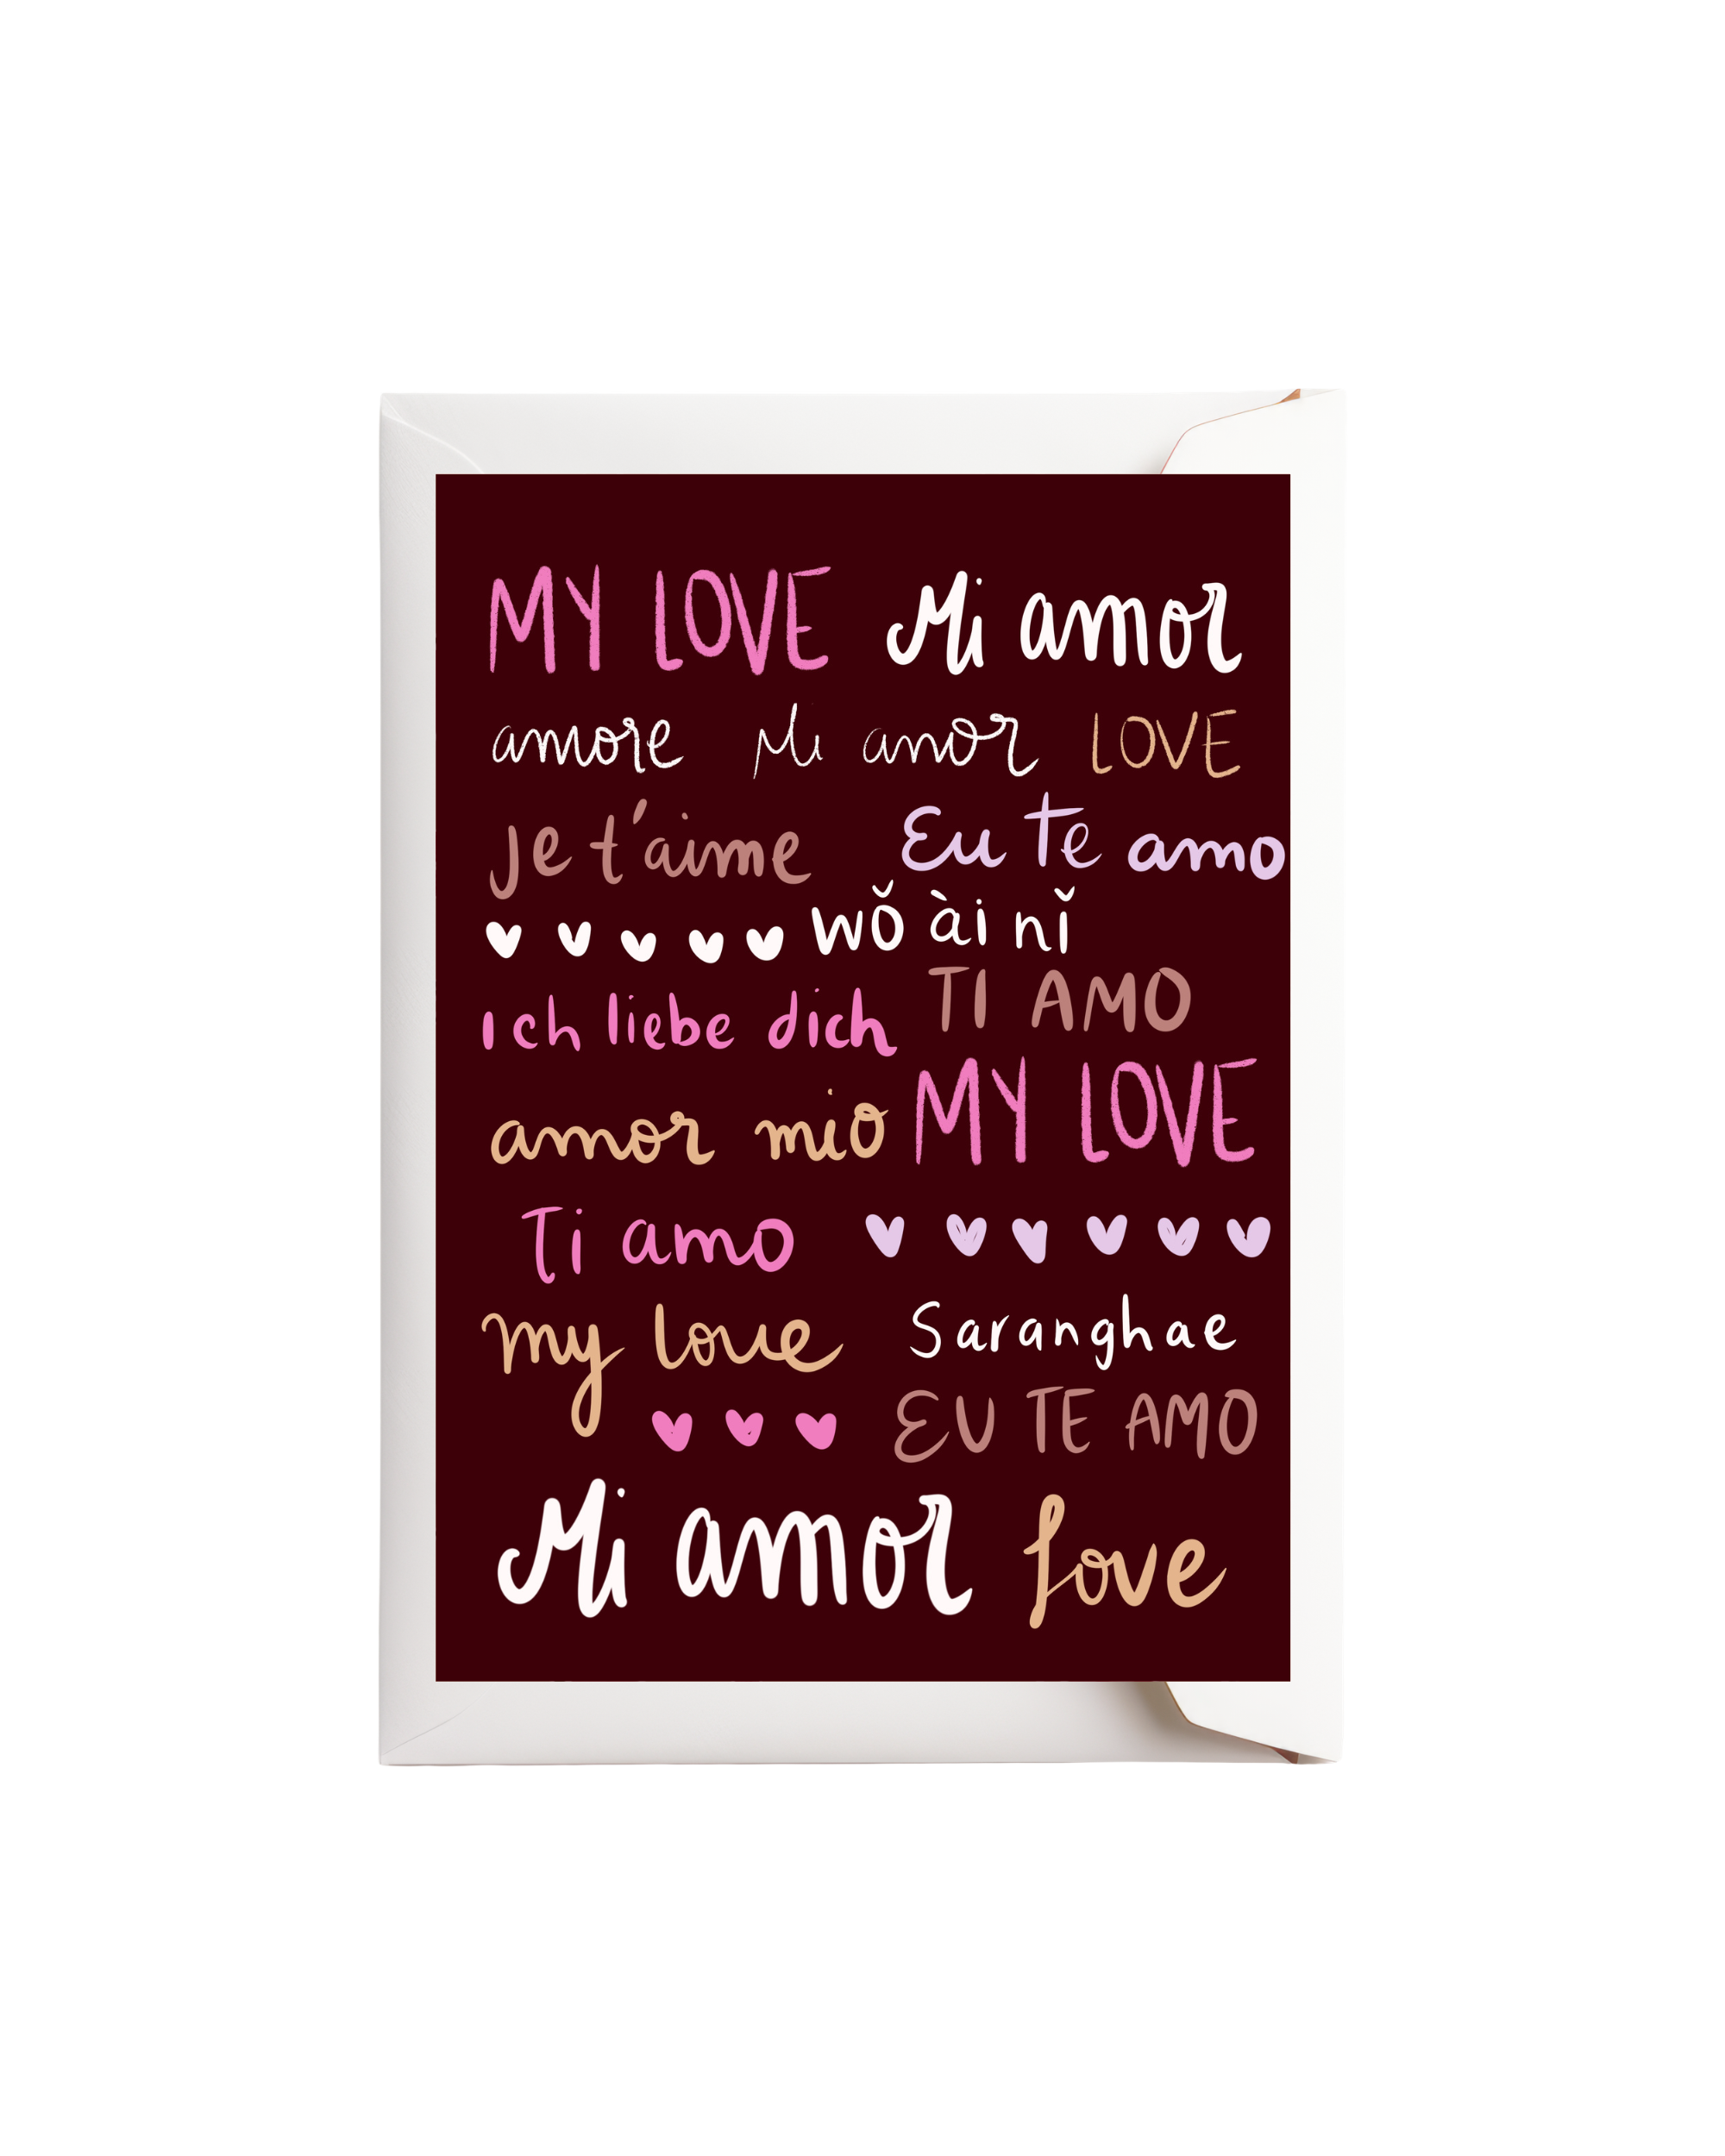 MY LOVE Mi amor
amore Mi amor LOVE
Je t'aime Eu te amo
wǒ ài nǐ
Ich liebe dich TI AMO
amor mio MY LOVE
Ti amo
my love Saranghae
EU TE AMO
Mi amor love